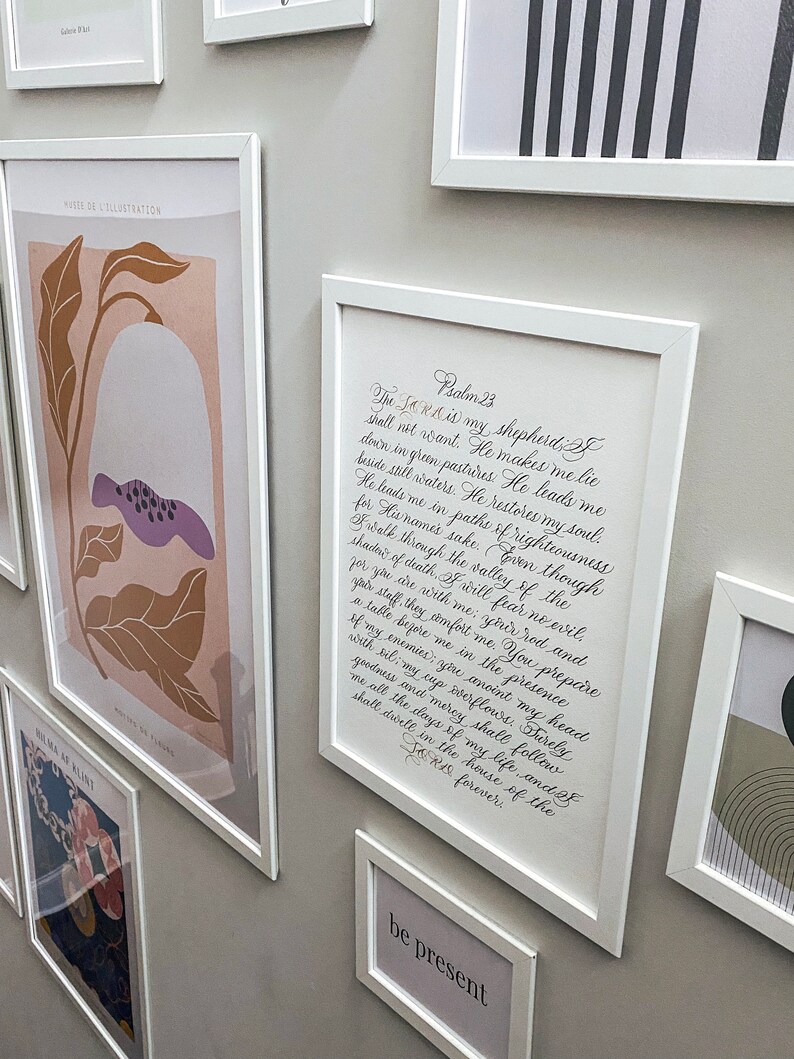 Galerie D'Art
MUSÉE DE L'ILLUSTRATION
MOTIFS DE FLEURS
HILMA AF KLINT
Psalm 23
The LORD is my shepherd; I
shall not want. He makes me lie
down in green pastures. He leads me
beside still waters. He restores my soul.
He leads me in paths of righteousness
for His name's sake. Even though
I walk through the valley of the
shadow of death, I will fear no evil,
for you are with me; your rod and
your staff, they comfort me. You prepare
a table before me in the presence
of my enemies; you anoint my head
with oil; my cup overflows. Surely
goodness and mercy shall follow
me all the days of my life, and I
shall dwell in the house of the
LORD forever.
be present